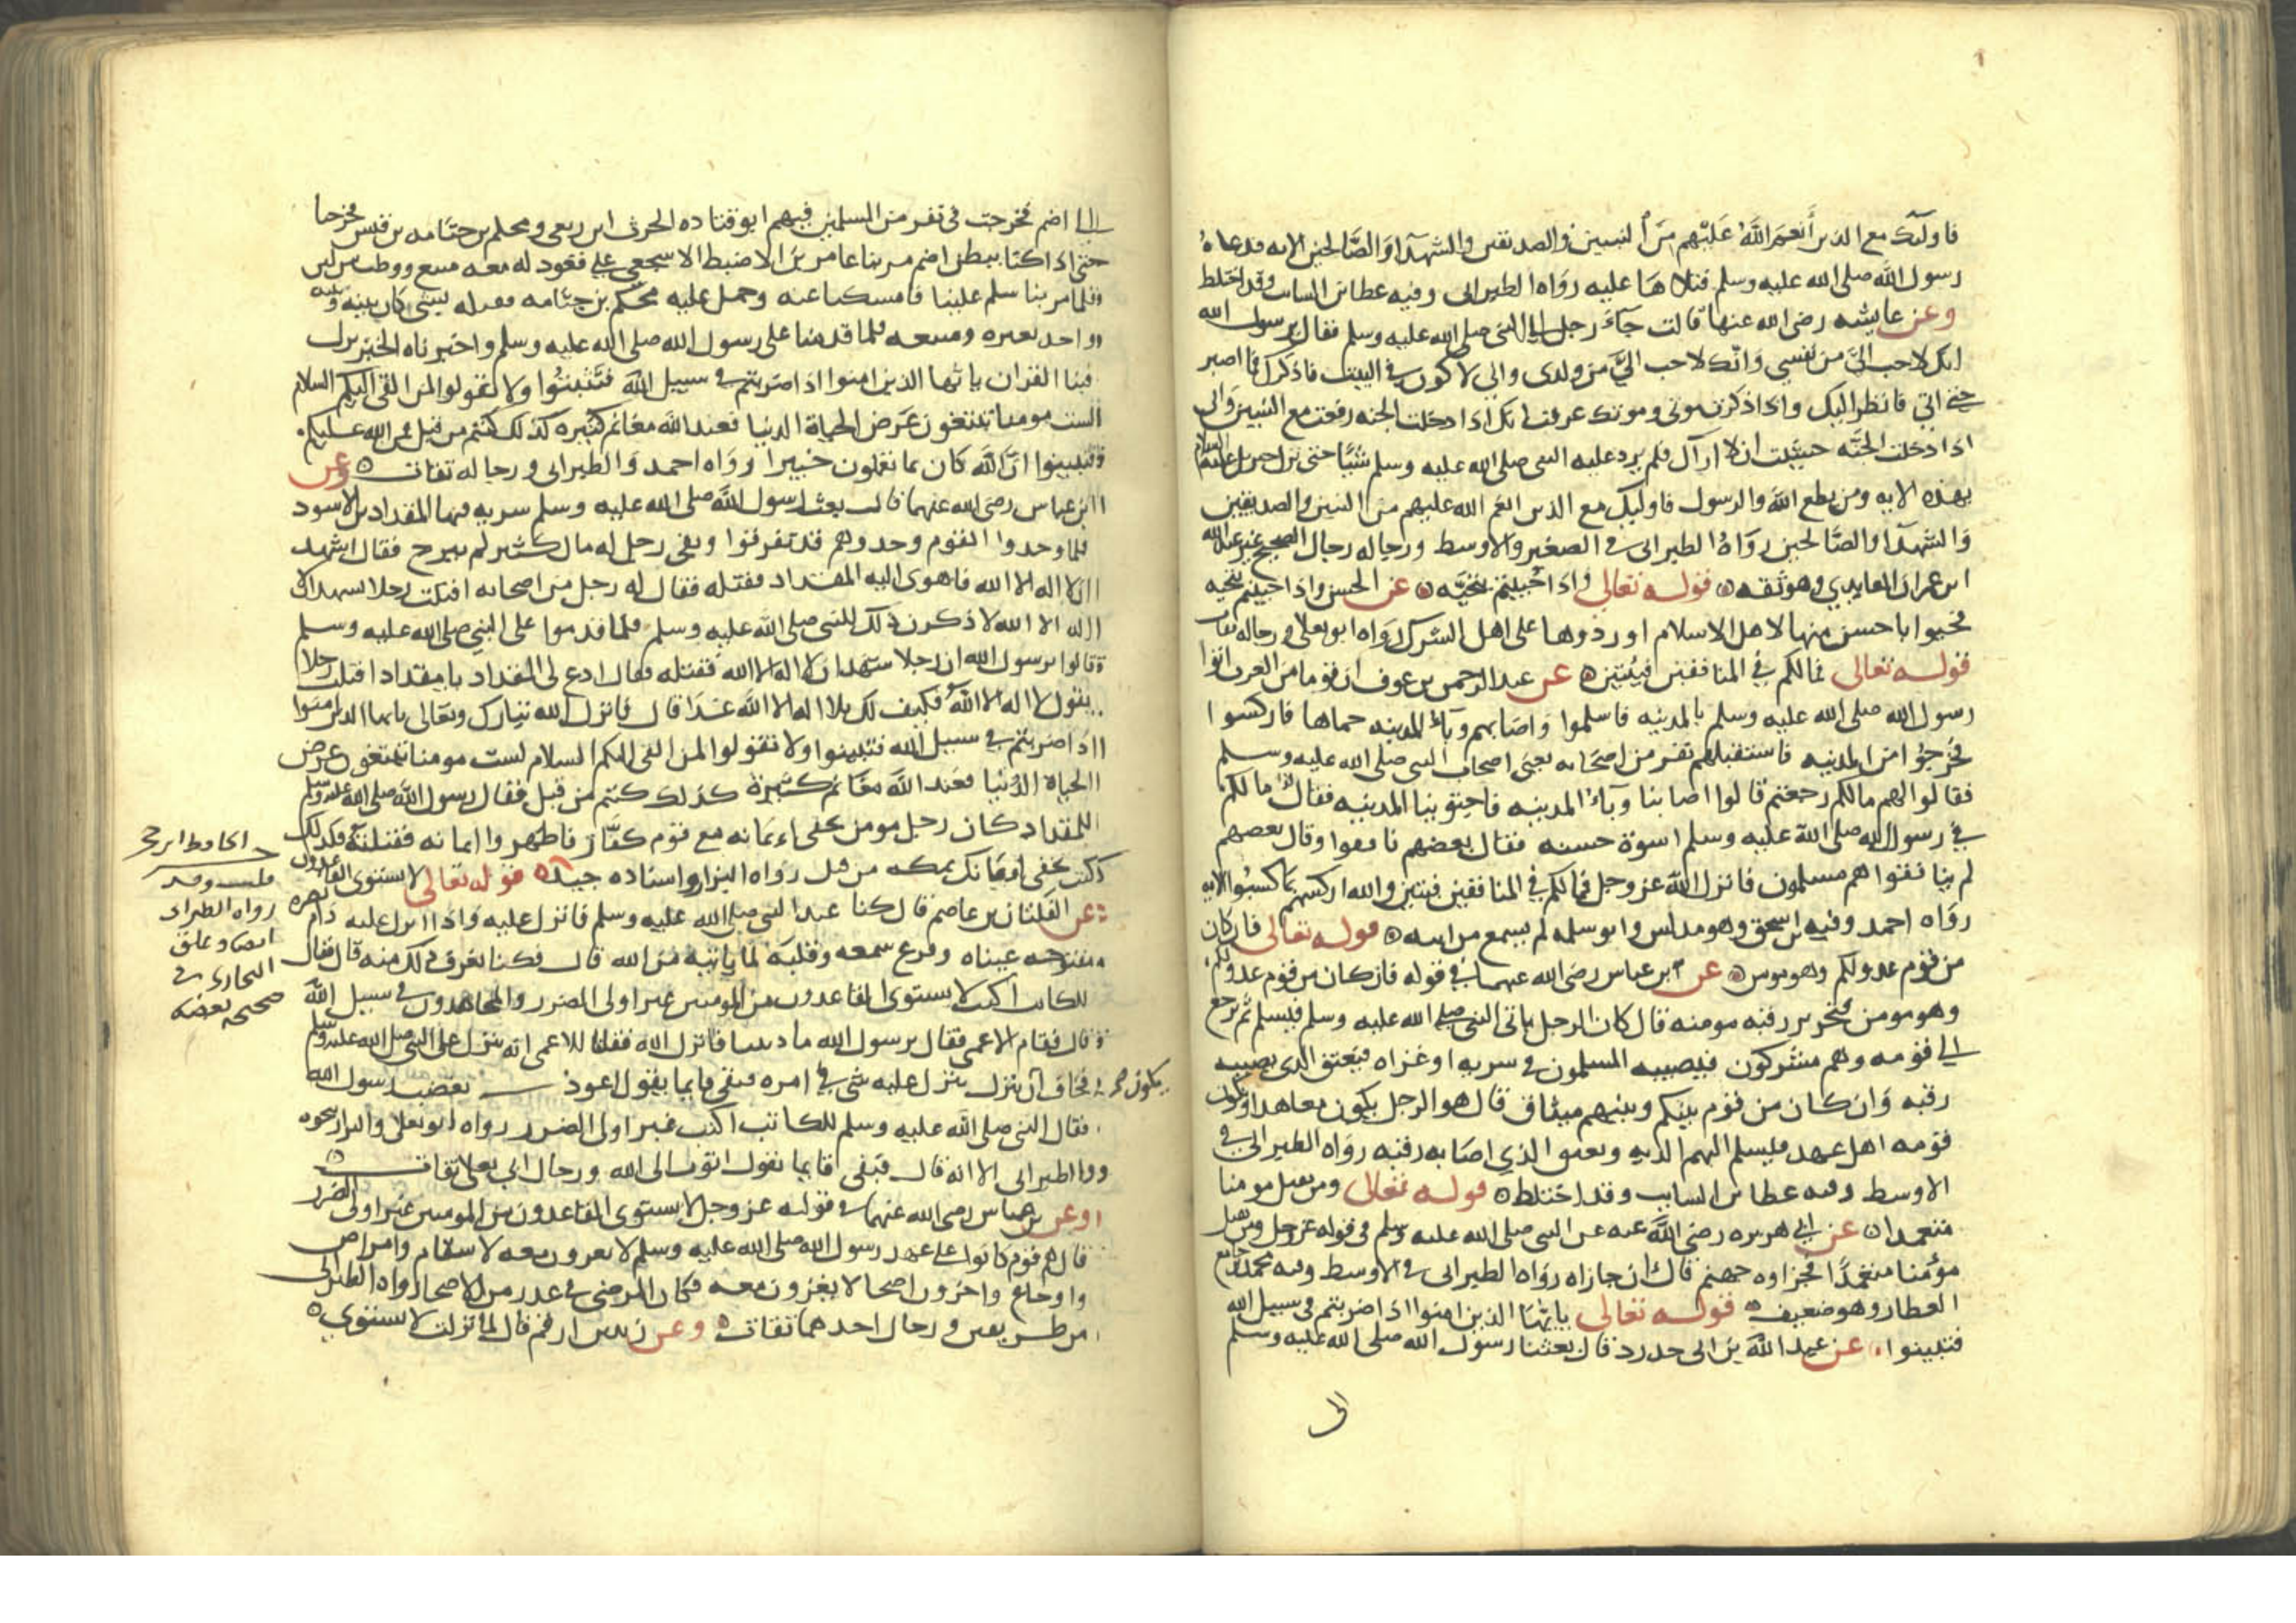 فاولئك مع الذين أنعم الله عليهم من النبيين والصديقين والشهدآء والصالحين الايه فدعاه
رسول الله صلى الله عليه وسلم فتلاها عليه رواه الطبراني وفيه عطا بن السايب وقد اختلط
وعن عايشه رضى الله عنها قالت جآء رجل الى النبي صلى الله عليه وسلم فقال يرسول الله
انك لاحب اليَّ من نفسي وانك لاحب اليَّ من ولدى واني لاكون في البيت فاذكرك فما اصبر
حتى اتي فانظر اليك واذا ذكرت موتى وموتك عرفت انك اذا دخلت الجنه رفعت مع النبيين واني
اذا دخلت الجنه خشيت ان لا اراك فلم يرد عليه النبي صلى الله عليه وسلم شيئا حتى نزل جبريل عليه السلام
بهذه الايه ومن يطع الله والرسول فاوليك مع الذين انعم الله عليهم من النبيين والصديقين
والشهدآء والصالحين رواه الطبراني في الصغير والاوسط ورجاله رجال الصحيح غير عبد الله
ابن عمران العابدي وهو ثقه قوله تعالى واذا حييتم بتحيه عن الحسن واذا حييتم بتحيه
فحيوا باحسن منها لاهل الاسلام او ردوها على اهل الشرك رواه ابو يعلى ورجاله ثقات
قوله تعالى فمالكم في المنافقين فيتين عن عبد الرحمن بن عوف ان قوما من العرب اتوا
رسول الله صلى الله عليه وسلم بالمدينه فاسلموا واصابهم وبآء المدينه حماها فاركسوا
فخرجوا من المدينه فاستقبلهم نفر من اصحابه يعنى اصحاب النبي صلى الله عليه وسلم
فقالوا لهم مالكم رجعتم قالوا اصابنا وبآء المدينه فاجتوينا المدينه فقالوا مالكم
في رسول الله صلى الله عليه وسلم اسوة حسنه فقال بعضهم نافقوا وقال بعضهم
لم ينافقوا هم مسلمون فانزل الله عز وجل فمالكم في المنافقين فيتين والله اركسهم بما كسبوا الايه
رواه احمد وفيه ابن اسحق وهو مدلس وابو سلمه لم يسمع من ابيه قوله تعالى فان كان
من قوم عدو لكم وهو مومن عن ابن عباس رضى الله عنهما في قوله فان كان من قوم عدو لكم
وهو مومن فتحرير رقبه مومنه قال كان الرجل ياتى النبي صلى الله عليه وسلم فيسلم ثم يرجع
الى قومه وهم مشركون فيصيبه المسلمون في سريه او غزاه فيعتق الذى يصيبه
رقبه وان كان من قوم بينكم وبينهم ميثاق قال هو الرجل يكون معاهدا ويكون
قومه اهل عهد فيسلم اليهم الديه ويعتق الذي اصابه رقبه رواه الطبراني في
الاوسط وفيه عطا بن السايب وقد اختلط قوله تعالى ومن يقتل مومنا
متعمدا عن ابي هريره رضى الله عنه عن النبي صلى الله عليه وسلم في قوله عز وجل ومن يقتل
مؤمنا متعمدًا فجزاوه جهنم قال ان جازاه رواه الطبراني في الاوسط وفيه محمد بن جامع
العطار وهو ضعيف قوله تعالى يايها الذين امنوا اذا ضربتم في سبيل الله
فتبينوا عن عبد الله بن ابي حدرد قال بعثنا رسول الله صلى الله عليه وسلم
الى
الى اضم فخرجت في نفر من المسلمين فيهم ابو قتاده الحرث ابن ربعي ومحلم بن جثامه بن قيس فخرجنا
حتى اذا كنا ببطن اضم مر بنا عامر بن الاضبط الاشجعي على قعود له معه متيع ووطب من لبن
فلما مر بنا سلم علينا فامسكنا عنه وحمل عليه محلم بن جثامه فقتله لشيء كان بينه وبينه
واخذ بعيره ومتيعه فلما قدمنا على رسول الله صلى الله عليه وسلم واخبرناه الخبر نزل
فينا القران يا ايها الذين امنوا اذا ضربتم في سبيل الله فتثبتوا ولا تقولوا لمن القى اليكم السلام
لست مومنا تبتغون عرض الحياة الدنيا فعند الله مغانم كثيره كذلك كنتم من قبل فمن الله عليكم
فتبينوا ان الله كان بما تعملون خبيرا رواه احمد والطبراني ورجاله ثقات وعن
ابن عباس رضى الله عنهما قال بعث رسول الله صلى الله عليه وسلم سريه فيها المقداد بن الاسود
فلما وجدوا القوم وجدوهم قد تفرقوا وبقى رجل له مال كثير لم يبرح فقال اشهد
ان لا اله الا الله فاهوى اليه المقداد فقتله فقال له رجل من اصحابه اقتلت رجلا يشهد ان لا
اله الا الله لاذكرن ذلك للنبي صلى الله عليه وسلم فلما قدموا على النبي صلى الله عليه وسلم
قالوا يرسول الله ان رجلا شهد ان لا اله الا الله فقتله فقال ادع لى المقداد يا مقداد اقتلت رجلا
يقول لا اله الا الله فكيف لك بلا اله الا الله غدا قال فانزل الله تبارك وتعالى يا ايها الذين امنوا
اذا ضربتم في سبيل الله فتبينوا ولا تقولوا لمن القى اليكم السلام لست مومنا تبتغون عرض
الحياة الدنيا فعند الله مغانم كثيرة كذلك كنتم من قبل فقال رسول الله صلى الله عليه وسلم
للمقداد كان رجل مومن يخفى ايمانه مع قوم كفار فاظهر ايمانه فقتلته وكذلك
كنت تخفى ايمانك بمكه من قبل رواه البزار واسناده جيد قوله تعالى لا يستوى القاعدون
عن الفلتان بن عاصم قال كنا عند النبي صلى الله عليه وسلم فانزل عليه واذا انزل عليه دام بصره
مفتوحه عيناه وفرغ سمعه وقلبه لما ياتيه من الله قال فكنا نعرف ذلك منه قال فقال
للكاتب اكتب لا يستوى القاعدون من المومنين غير اولى الضرر والمجاهدون في سبيل الله
قال فقام الاعمى فقال يرسول الله ما ذنبنا فانزل الله فقلنا للاعمى انه ينزل على النبي صلى الله عليه وسلم
فخاف ان ينزل عليه شي في امره فبقى قايما يقول اعوذ بغضب رسول الله
فقال النبي صلى الله عليه وسلم للكاتب اكتب غير اولى الضرر رواه ابو يعلى والبزار بنحوه
والطبراني الا انه قال فبقى قايما يقول اتوب الى الله ورجال ابي يعلى ثقات
وعن ابن عباس رضى الله عنهما في قوله عز وجل لا يستوى القاعدون من المومنين غير اولى الضرر
قال هم قوم كانوا على عهد رسول الله صلى الله عليه وسلم لا يغزون معه لاسقام وامراض
واوجاع واخرون اصحا لا يغزون معه فكان المرضى في عذر من الاصحا رواه الطبراني
من طريقين ورجال احدهما ثقات وعن زيد بن ارقم قال لما نزلت لا يستوي
الحافظ ابن حجر
قلت وقد
رواه الطبراني
ايضا وعلق
البخاري في
صحيحه بعضه
يكون